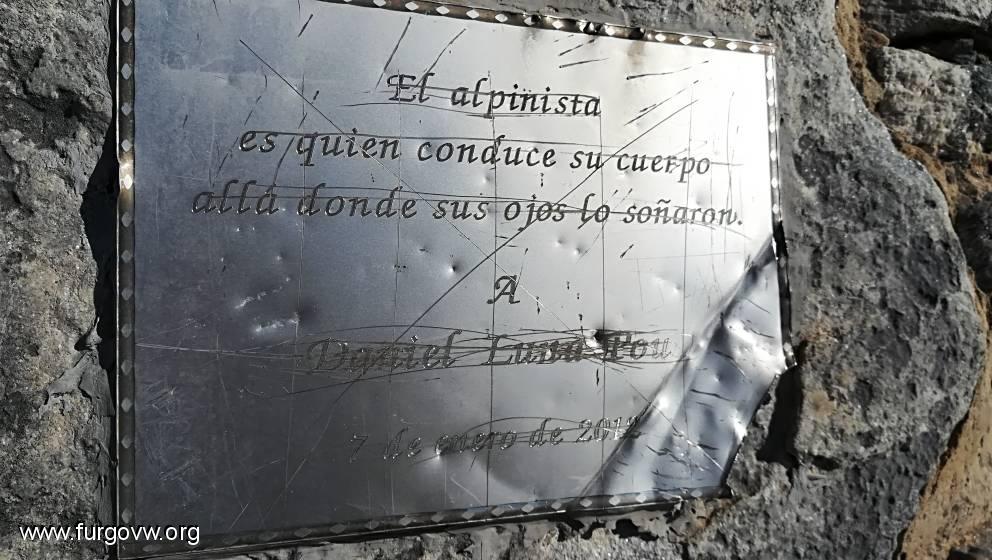 El alpinista
es quien conduce su cuerpo
allá donde sus ojos lo soñaron.
A
Daniel Luna Pou
7 de enero de 2012
www.furgovw.org